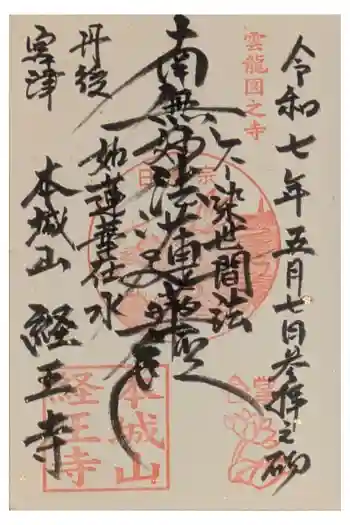 雲龍図之寺
令和七年五月七日参拝之砌
不染世間法
南無妙法蓮華経
如蓮華在水
丹後
宮津
本城山 経王寺
本城山
経王寺